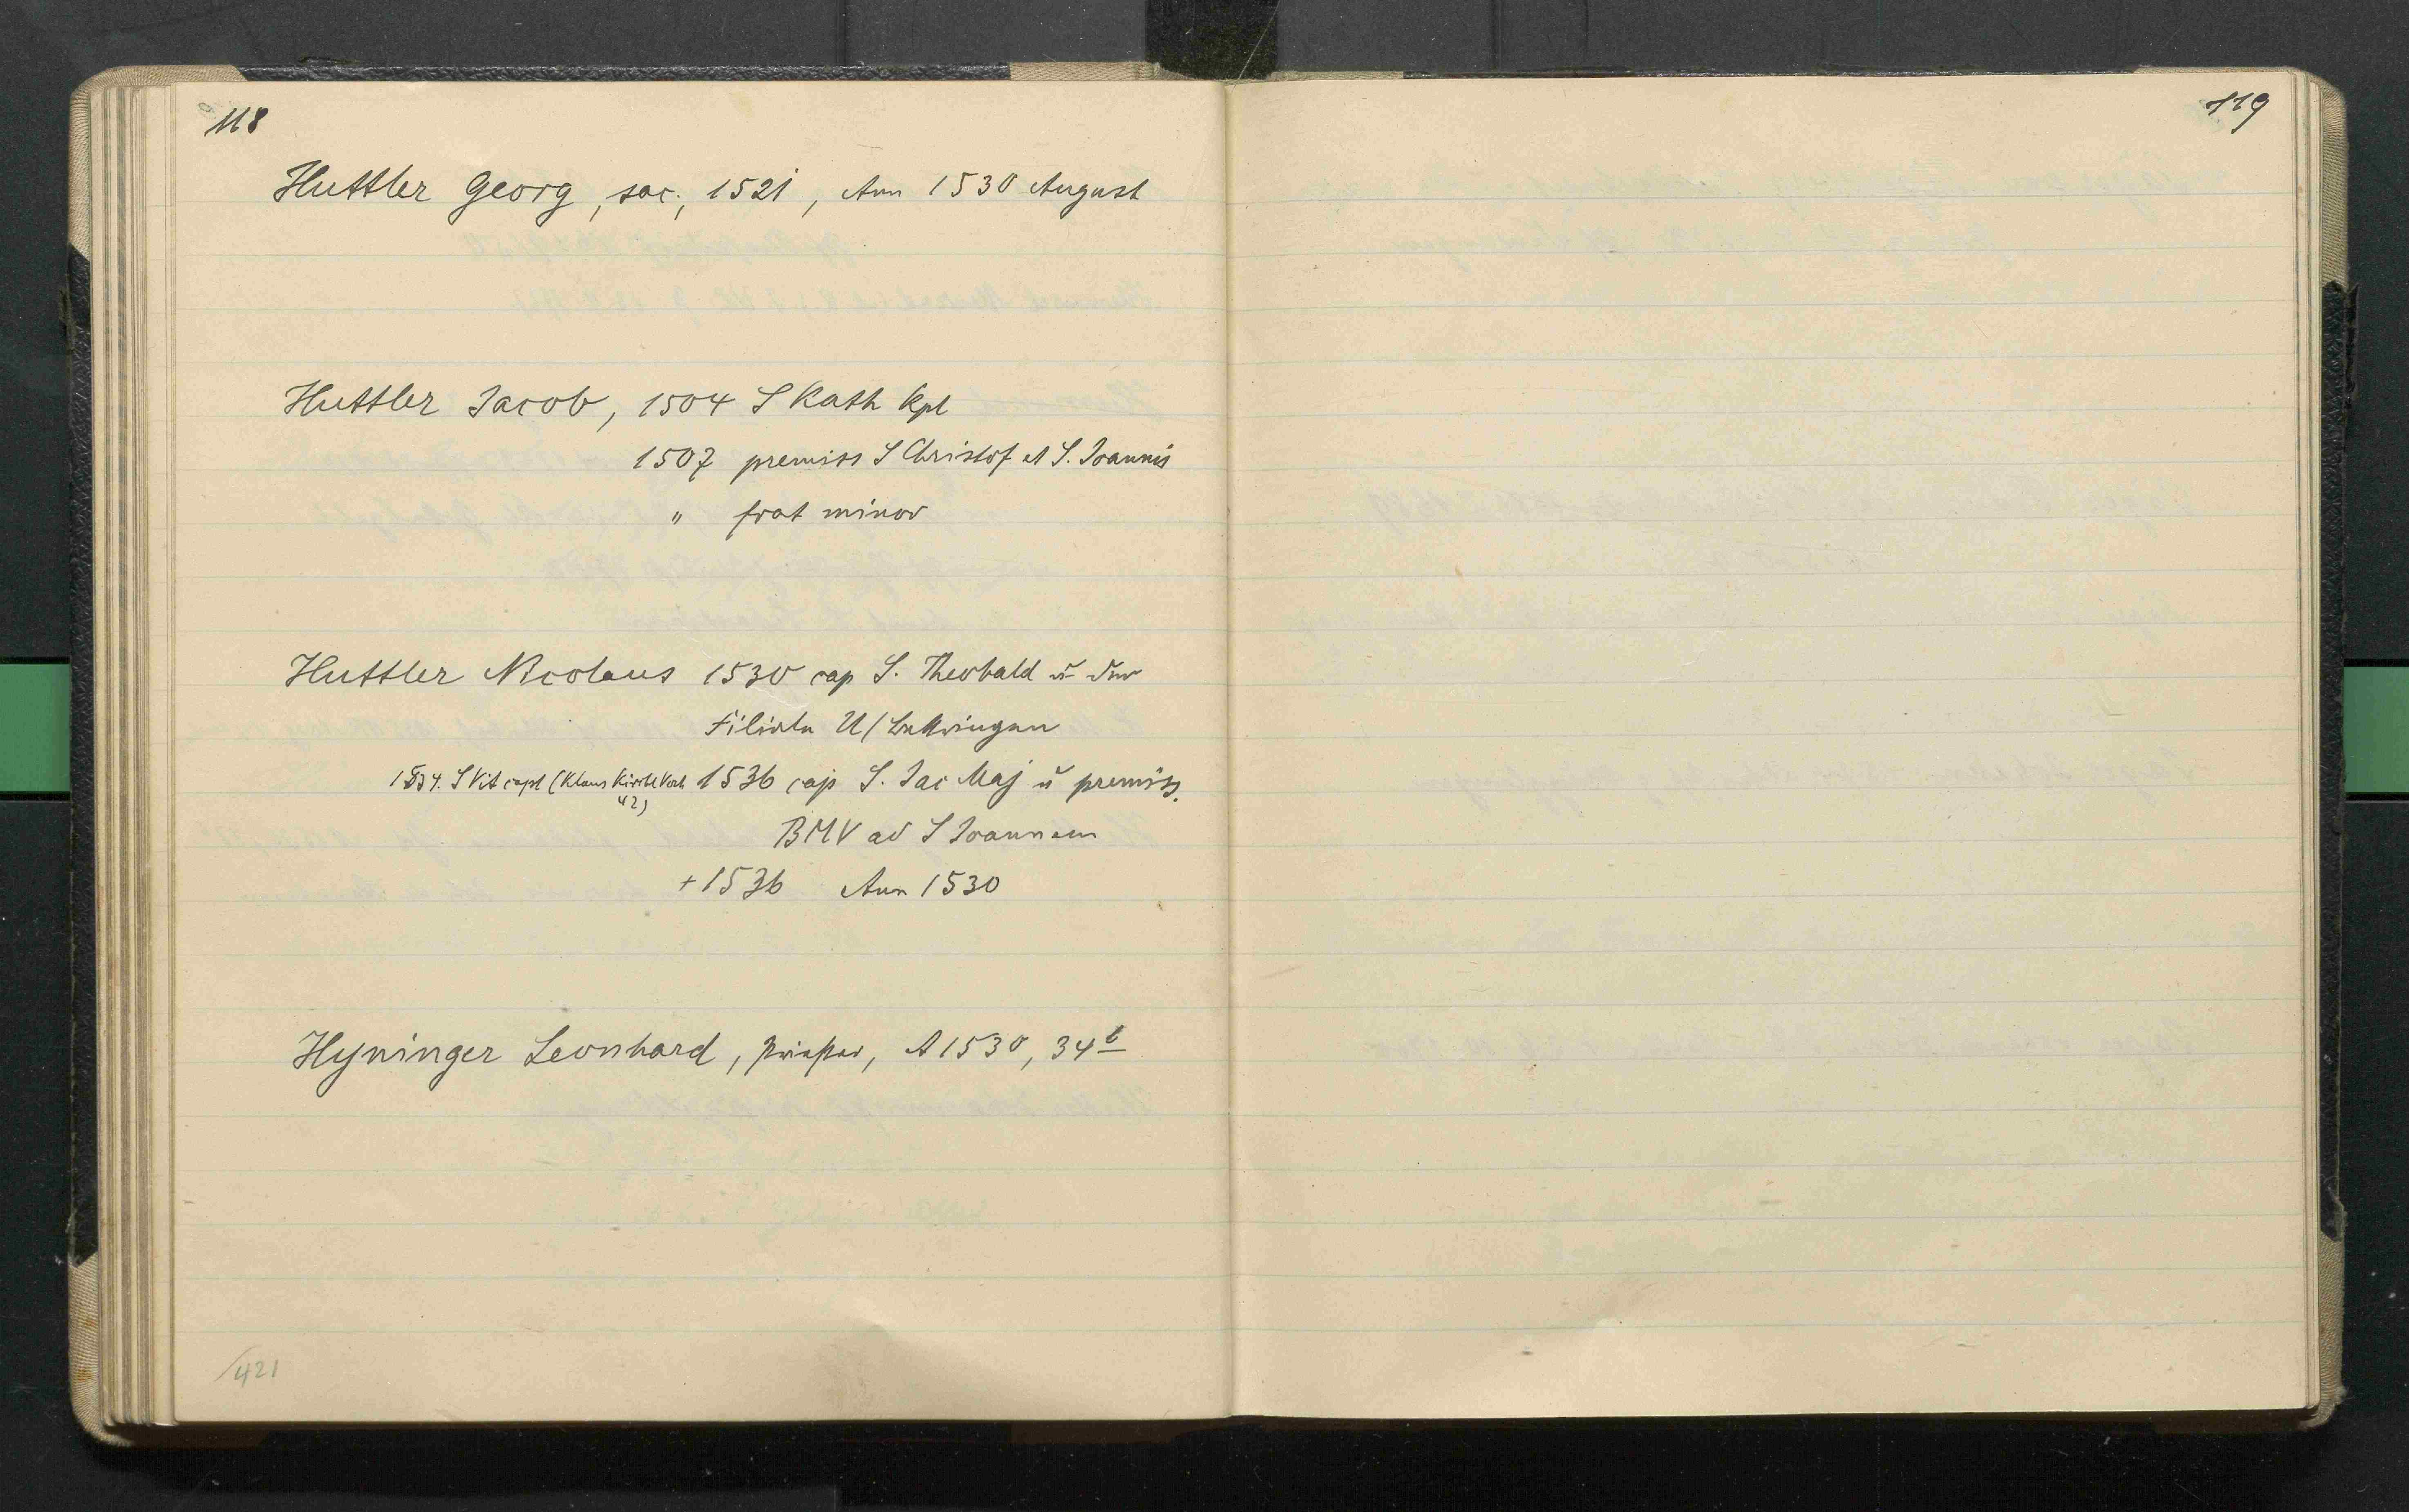 118
Huttler Georg, sac., 1521, Ann 1530 August
Huttler Jacob, 1504 S Kath kpl
1507 premiss S Christof et S. Joannis
" frat minor
Huttler Nicolaus 1530 cap S. Theobald u der
Filiale U/
1534. S Vit capl (Klaus Kirchl 1536 cap S. Jac Maj u premiss.
42)
BMV ad S Joannem
+ 1536 Ann 1530
Hyninger Leonhard, Priester, A 1530, 34b
/421
119